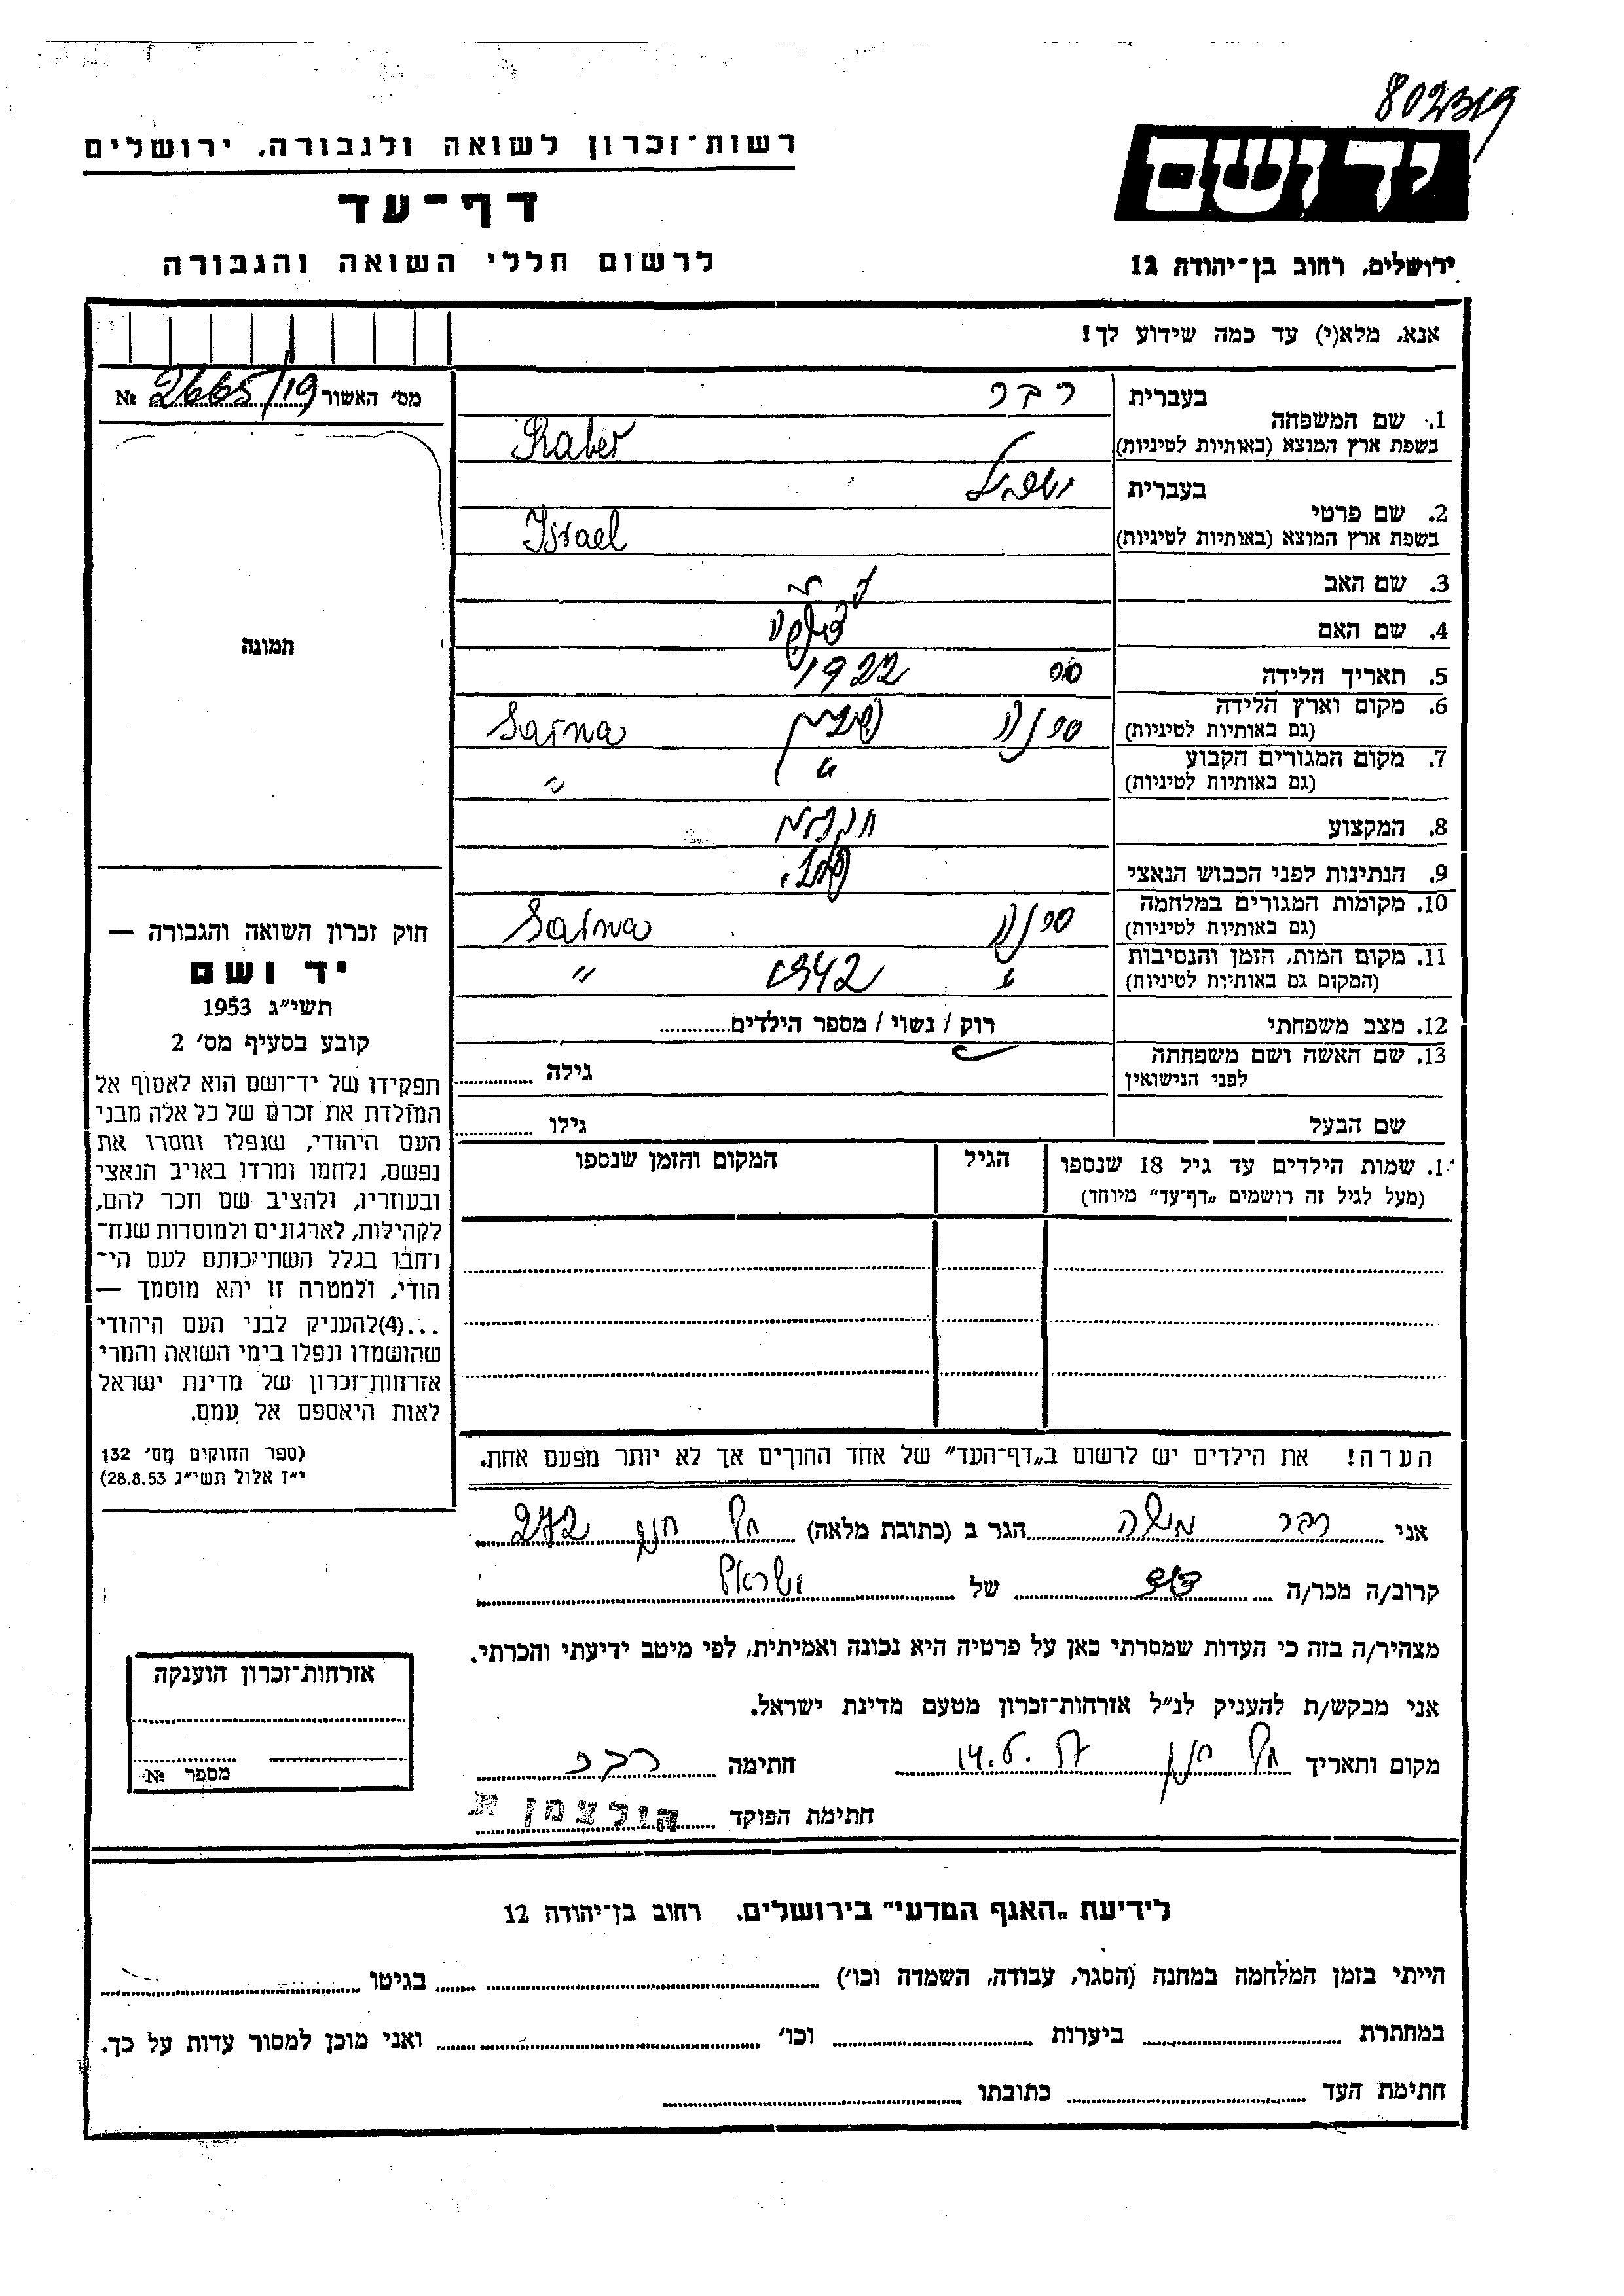 802319
יד ושם
רשות־זכרון לשואה ולגבורה, ירושלים
דף־עד
לרשום חללי השואה והגבורה
ירושלים, רחוב בן־יהודה 12
אנא, מלא(י) עד כמה שידוע לך!
מס׳ האשור 2665/19 №
תמונה
בעברית רבר
1. שם המשפחה
בשפת ארץ המוצא (באותיות לטיניות) Raber
בעברית ישראל
2. שם פרטי
בשפת ארץ המוצא (באותיות לטיניות) Israel
3. שם האב
4. שם האם
5. תאריך הלידה 1922
6. מקום וארץ הלידה
(גם באותיות לטיניות) סרנה פולין Sarna
7. מקום המגורים הקבוע
(גם באותיות לטיניות) " "
8. המקצוע
9. הנתינות לפני הכבוש הנאצי
10. מקומות המגורים במלחמה
(גם באותיות לטיניות) סרנה Sarna
11. מקום המות, הזמן והנסיבות
(המקום גם באותיות לטיניות) " 1942 "
12. מצב משפחתי רוק / נשוי / מספר הילדים
13. שם האשה ושם משפחתה
לפני הנישואין גילה
שם הבעל גילו
1. שמות הילדים עד גיל 18 שנספו הגיל המקום והזמן שנספו
(מעל לגיל זה רושמים „דף־עד״ מיוחד)
חוק זכרון השואה והגבורה —
יד ושם
תשי״ג 1953
קובע בסעיף מס׳ 2
תפקידו של יד־ושם הוא לאסוף אל
המולדת את זכרם של כל אלה מבני
העם היהודי, שנפלו ומסרו את
נפשם, נלחמו ומרדו באויב הנאצי
ובעוזריו, ולהציב שם וזכר להם,
לקהילות, לארגונים ולמוסדות שנח־
רבו בגלל השתייכותם לעם הי־
הודי, ולמטרה זו יהא מוסמך —
...(4)להעניק לבני העם היהודי
שהושמדו ונפלו בימי השואה והמרי
אזרחות־זכרון של מדינת ישראל
לאות היאספם אל עמם.
(ספר החוקים מס׳ 132
י״ז אלול תשי״ג 28.8.53)
הערה! את הילדים יש לרשום ב„דף־העד״ של אחד ההורים אך לא יותר מפעם אחת.
אני רבר משה הגר ב (כתובת מלאה) תל חנן 272
קרוב/ה מכר/ה דוד של ישראל
מצהיר/ה בזה כי העדות שמסרתי כאן על פרטיה היא נכונה ואמיתית, לפי מיטב ידיעתי והכרתי.
אני מבקש/ת להעניק לנ״ל אזרחות־זכרון מטעם מדינת ישראל.
מקום ותאריך תל חנן 14.6.57 חתימה רבר
חתימת הפוקד הולצמן
אזרחות־זכרון הוענקה
מספר №
לידיעת „האגף המדעי״ בירושלים, רחוב בן־יהודה 12
הייתי בזמן המלחמה במחנה (הסגר, עבודה, השמדה וכו׳) בגיטו
במחתרת ביערות וכו׳ ואני מוכן למסור עדות על כך.
חתימת העד כתובתו